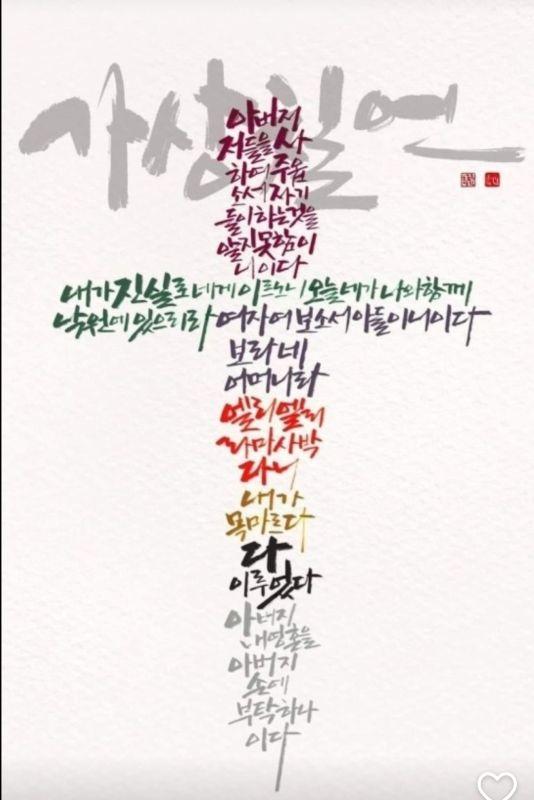 가상칠언
아버지
저들을 사
하여 주옵
소서 자기
들이 하는것을
알지 못함이
니이다
내가 진실로 네게 이르노니 오늘 네가 나와 함께
낙원에 있으리라 여자여 보소서 아들이니이다
보라 네
어머니라
엘리 엘리
라마 사박
다니
내가
목마르다
다
이루었다
아버지
내 영혼을
아버지
손에
부탁하나
이다